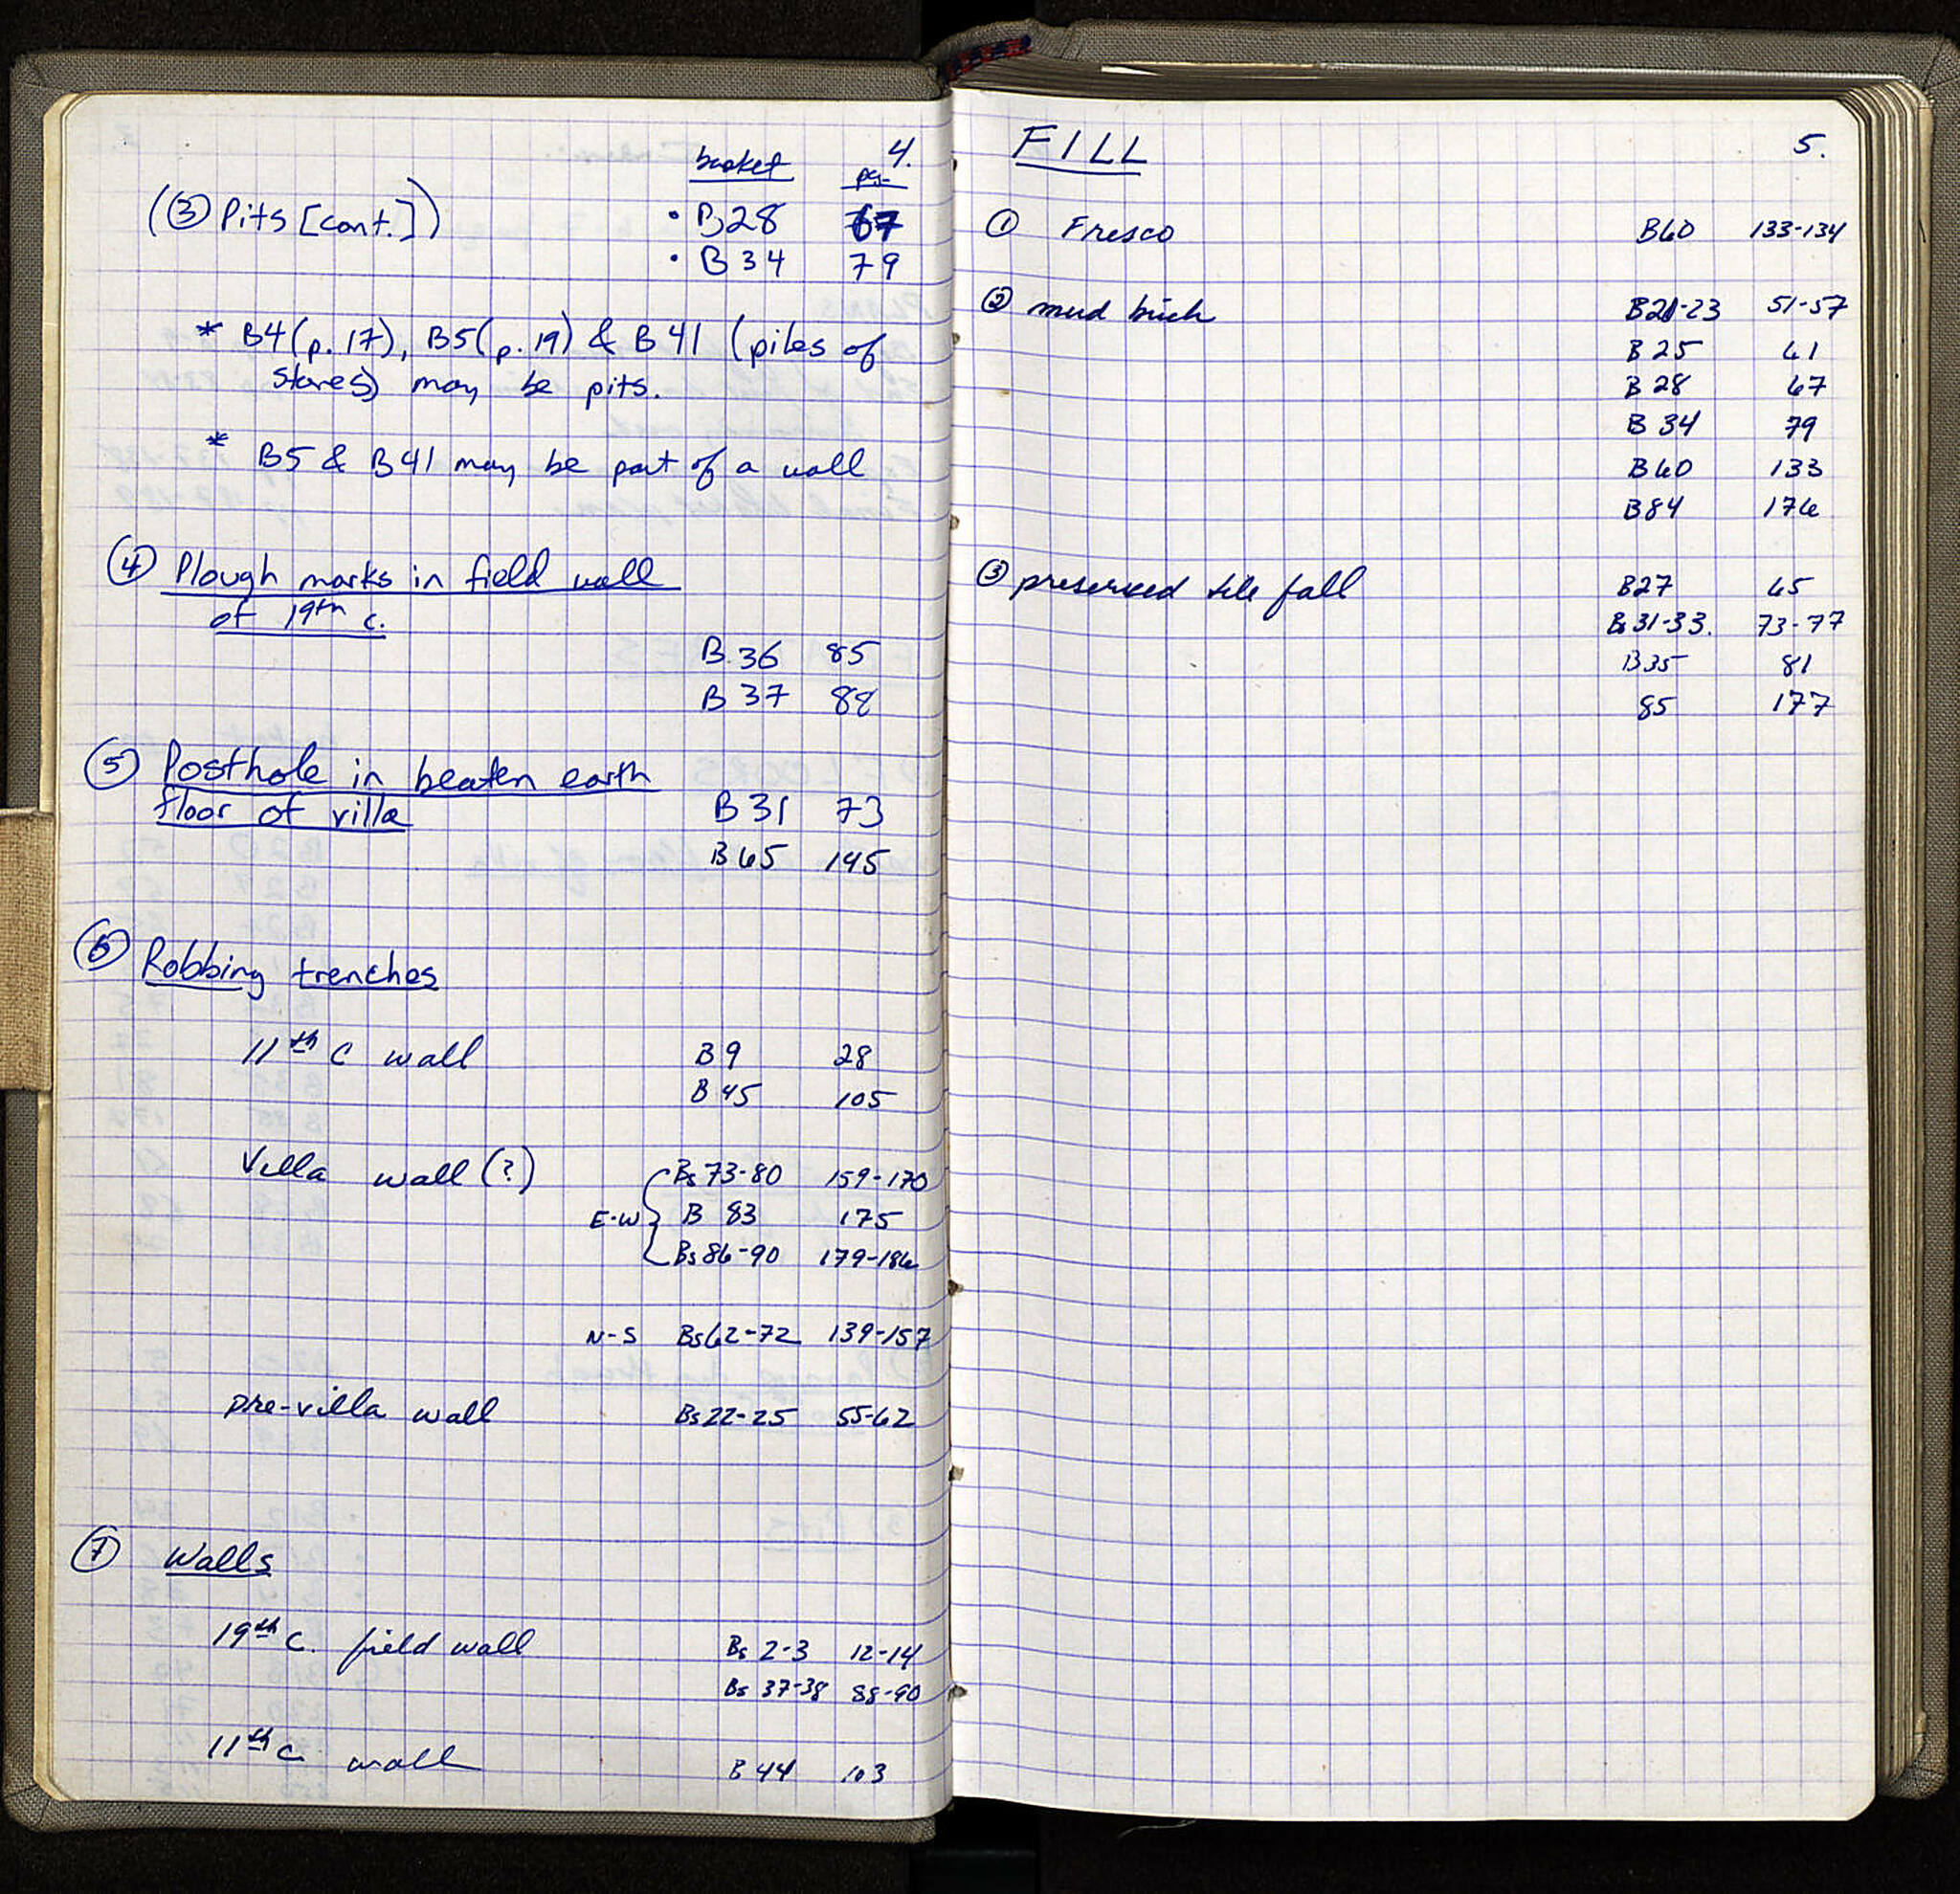 4.
basket pg.
(③ Pits [cont.]) • B28 67
• B34 79
* B4 (p. 17), B5 (p. 19) & B 41 (piles of
stones) may be pits.
* B5 & B41 may be part of a wall
④ Plough marks in field wall
of 19th c.
B.36 85
B 37 88
⑤ Posthole in beaten earth
floor of villa B31 73
B65 145
⑥ Robbing trenches
11th C wall B9 28
B45 105
Villa wall (?) Bs 73-80 159-170
E-W B 83 175
Bs 86-90 179-186
N-S Bs 62-72 139-157
pre-villa wall Bs 22-25 55-62
⑦ Walls
19th c. field wall Bs 2-3 12-14
Bs 37-38 88-90
11th c wall B 44 103
FILL 5.
① Fresco B60 133-134
② mud brick B21-23 51-57
B 25 61
B 28 67
B 34 79
B60 133
B84 176
③ preserved tile fall B27 65
Bs 31-33. 73-77
B35 81
85 177